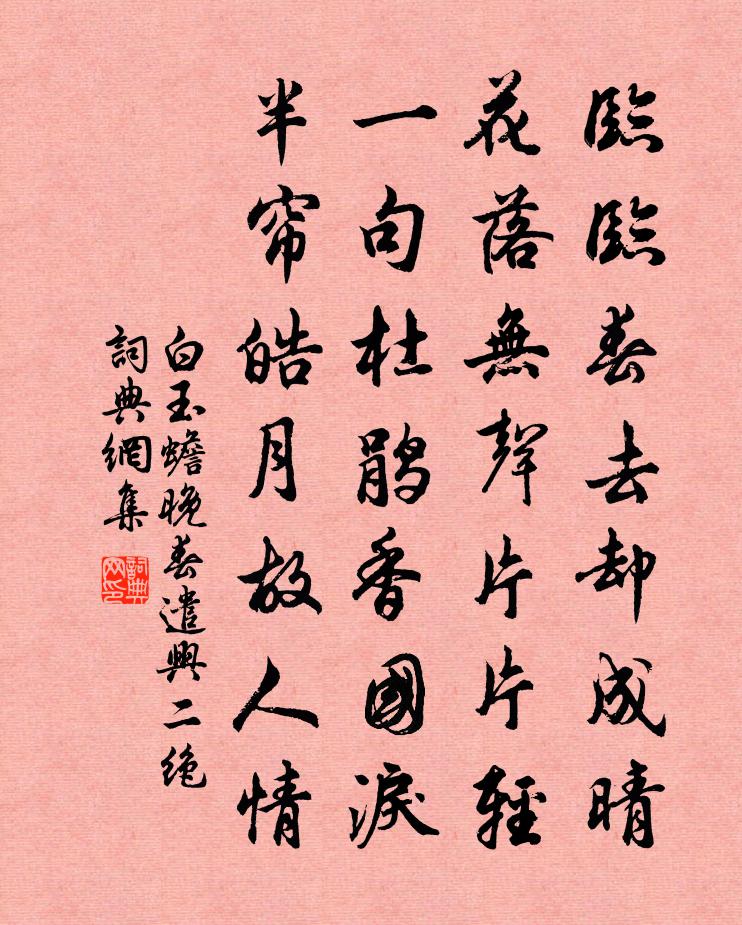 臨臨春去却成晴
花落無聲片片輕
一句杜鵑香國淚
半帘皓月故人情
白玉蟾晚春遣興二绝
詞典網集
詞典網印